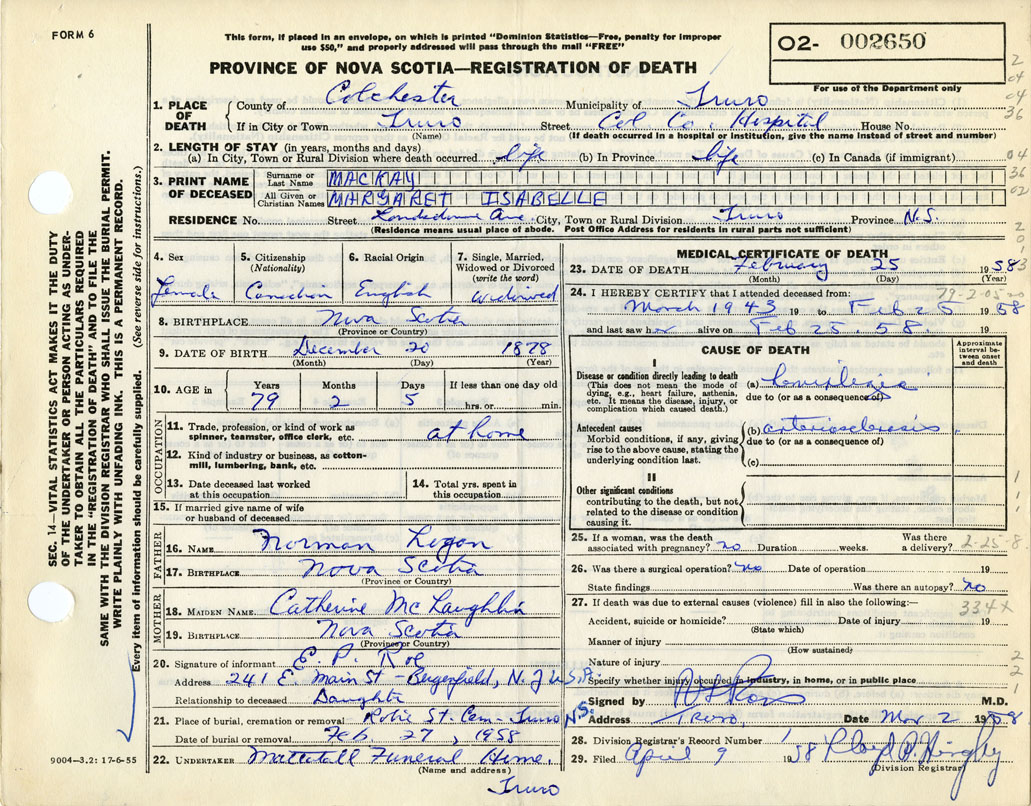 FORM 6
This form, if placed in an envelope, on which is printed "Dominion Statistics—Free, penalty for improper
use $50," and properly addressed will pass through the mail "FREE"
PROVINCE OF NOVA SCOTIA—REGISTRATION OF DEATH
O2- 002650
For use of the Department only
1. PLACE OF DEATH
County of Colchester Municipality of Truro
If in City or Town Truro Street Col. Co. Hospital House No.
(Name) (If death occurred in a hospital or institution, give the name instead of street and number)
2. LENGTH OF STAY (in years, months and days)
(a) In City, Town or Rural Division where death occurred life (b) In Province life (c) In Canada (if immigrant)
3. PRINT NAME OF DECEASED
Surname or Last Name MACKAY
All Given or Christian Names MARGARET ISABELLE
RESIDENCE No. Street Ave City, Town or Rural Division Truro Province N.S.
(Residence means usual place of abode. Post Office Address for residents in rural parts not sufficient)
4. Sex Female
5. Citizenship (Nationality) Canadian
6. Racial Origin English
7. Single, Married, Widowed or Divorced (write the word) Widowed
8. BIRTHPLACE Nova Scotia
(Province or Country)
9. DATE OF BIRTH December 20 1878
(Month) (Day) (Year)
10. AGE in Years 79 Months 2 Days 5 If less than one day old hrs. or min.
OCCUPATION
11. Trade, profession, or kind of work as spinner, teamster, office clerk, etc. at home
12. Kind of industry or business, as cotton-mill, lumbering, bank, etc.
13. Date deceased last worked at this occupation
14. Total yrs. spent in this occupation
15. If married give name of wife or husband of deceased
FATHER
16. NAME Norman Logan
17. BIRTHPLACE Nova Scotia
(Province or Country)
MOTHER
18. MAIDEN NAME Catherine McLaughlin
19. BIRTHPLACE Nova Scotia
(Province or Country)
20. Signature of informant E. P. Roe
Address 241 E. Main St - Bergenfield, N.J U.S.A.
Relationship to deceased Daughter
21. Place of burial, cremation or removal Robie St. Cem - Truro N.S.
Date of burial or removal Feb. 27, 1958
22. UNDERTAKER Mattatall Funeral Home.
(Name and address)
Truro
MEDICAL CERTIFICATE OF DEATH
23. DATE OF DEATH February 25 1958
(Month) (Day) (Year)
24. I HEREBY CERTIFY that I attended deceased from:
79-2-05
March 1943 19 to Feb 25 1958
and last saw her alive on Feb 25. 58. 19
CAUSE OF DEATH
Approximate interval between onset and death
I
Disease or condition directly leading to death
(This does not mean the mode of dying, e.g., heart failure, asthenia, etc. It means the disease, injury, or complication which caused death.)
(a) Hemiplegia
due to (or as a consequence of)
Antecedent causes
Morbid conditions, if any, giving rise to the above cause, stating the underlying condition last.
(b) arteriosclerosis
due to (or as a consequence of)
(c)
II
Other significant conditions
contributing to the death, but not related to the disease or condition causing it.
25. If a woman, was the death associated with pregnancy? no Duration weeks. Was there a delivery?
2-25-8
26. Was there a surgical operation? no Date of operation 19
State findings Was there an autopsy? no
27. If death was due to external causes (violence) fill in also the following:—
334x
Accident, suicide or homicide? Date of injury 19
(State which)
Manner of injury
(How sustained)
Nature of injury
Specify whether injury occurred in industry, in home, or in public place
Signed by Ross M.D.
Address Truro, Date Mar 2 1958
28. Division Registrar's Record Number
29. Filed April 9 1958
(Division Registrar)
SEC. 14—VITAL STATISTICS ACT MAKES IT THE DUTY
OF THE UNDERTAKER OR PERSON ACTING AS UNDER-
TAKER TO OBTAIN ALL THE PARTICULARS REQUIRED
IN THE "REGISTRATION OF DEATH" AND TO FILE THE
SAME WITH THE DIVISION REGISTRAR WHO SHALL ISSUE THE BURIAL PERMIT.
WRITE PLAINLY WITH UNFADING INK. THIS IS A PERMANENT RECORD.
Every item of information should be carefully supplied. (See reverse side for instructions.)
9004—3.2: 17-6-55
2
04
04
36
04
36
02